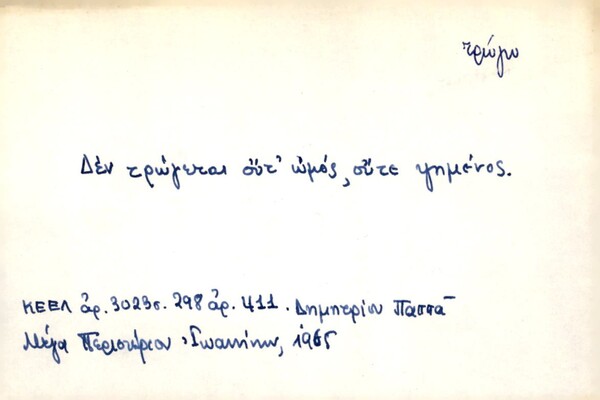 τρώγω
Δὲν τρώγεται οὔτ' ὠμός, οὔτε ψημένος.
ΚΕΕΛ ἀρ. 3023 σ. 298 ἀρ. 411. Δημητρίου Παππᾶ
Μέγα Περιστέριον Ἰωαννίνων, 1965